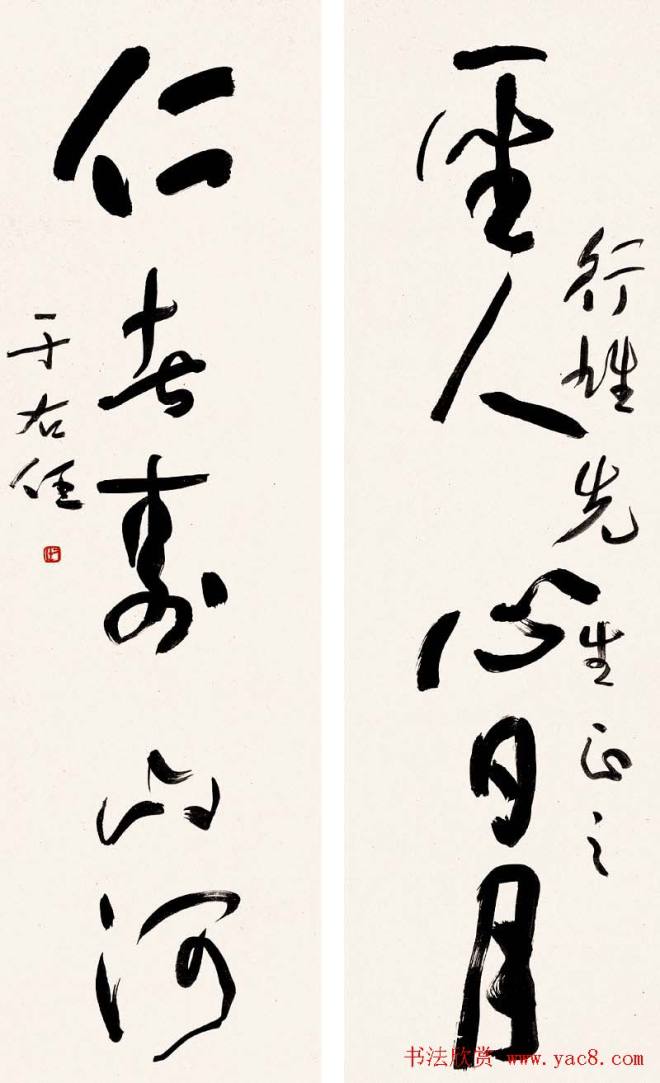 聖人心日月
行雄先生正之
仁者壽山河
于右任
书法欣赏 www.yac8.com